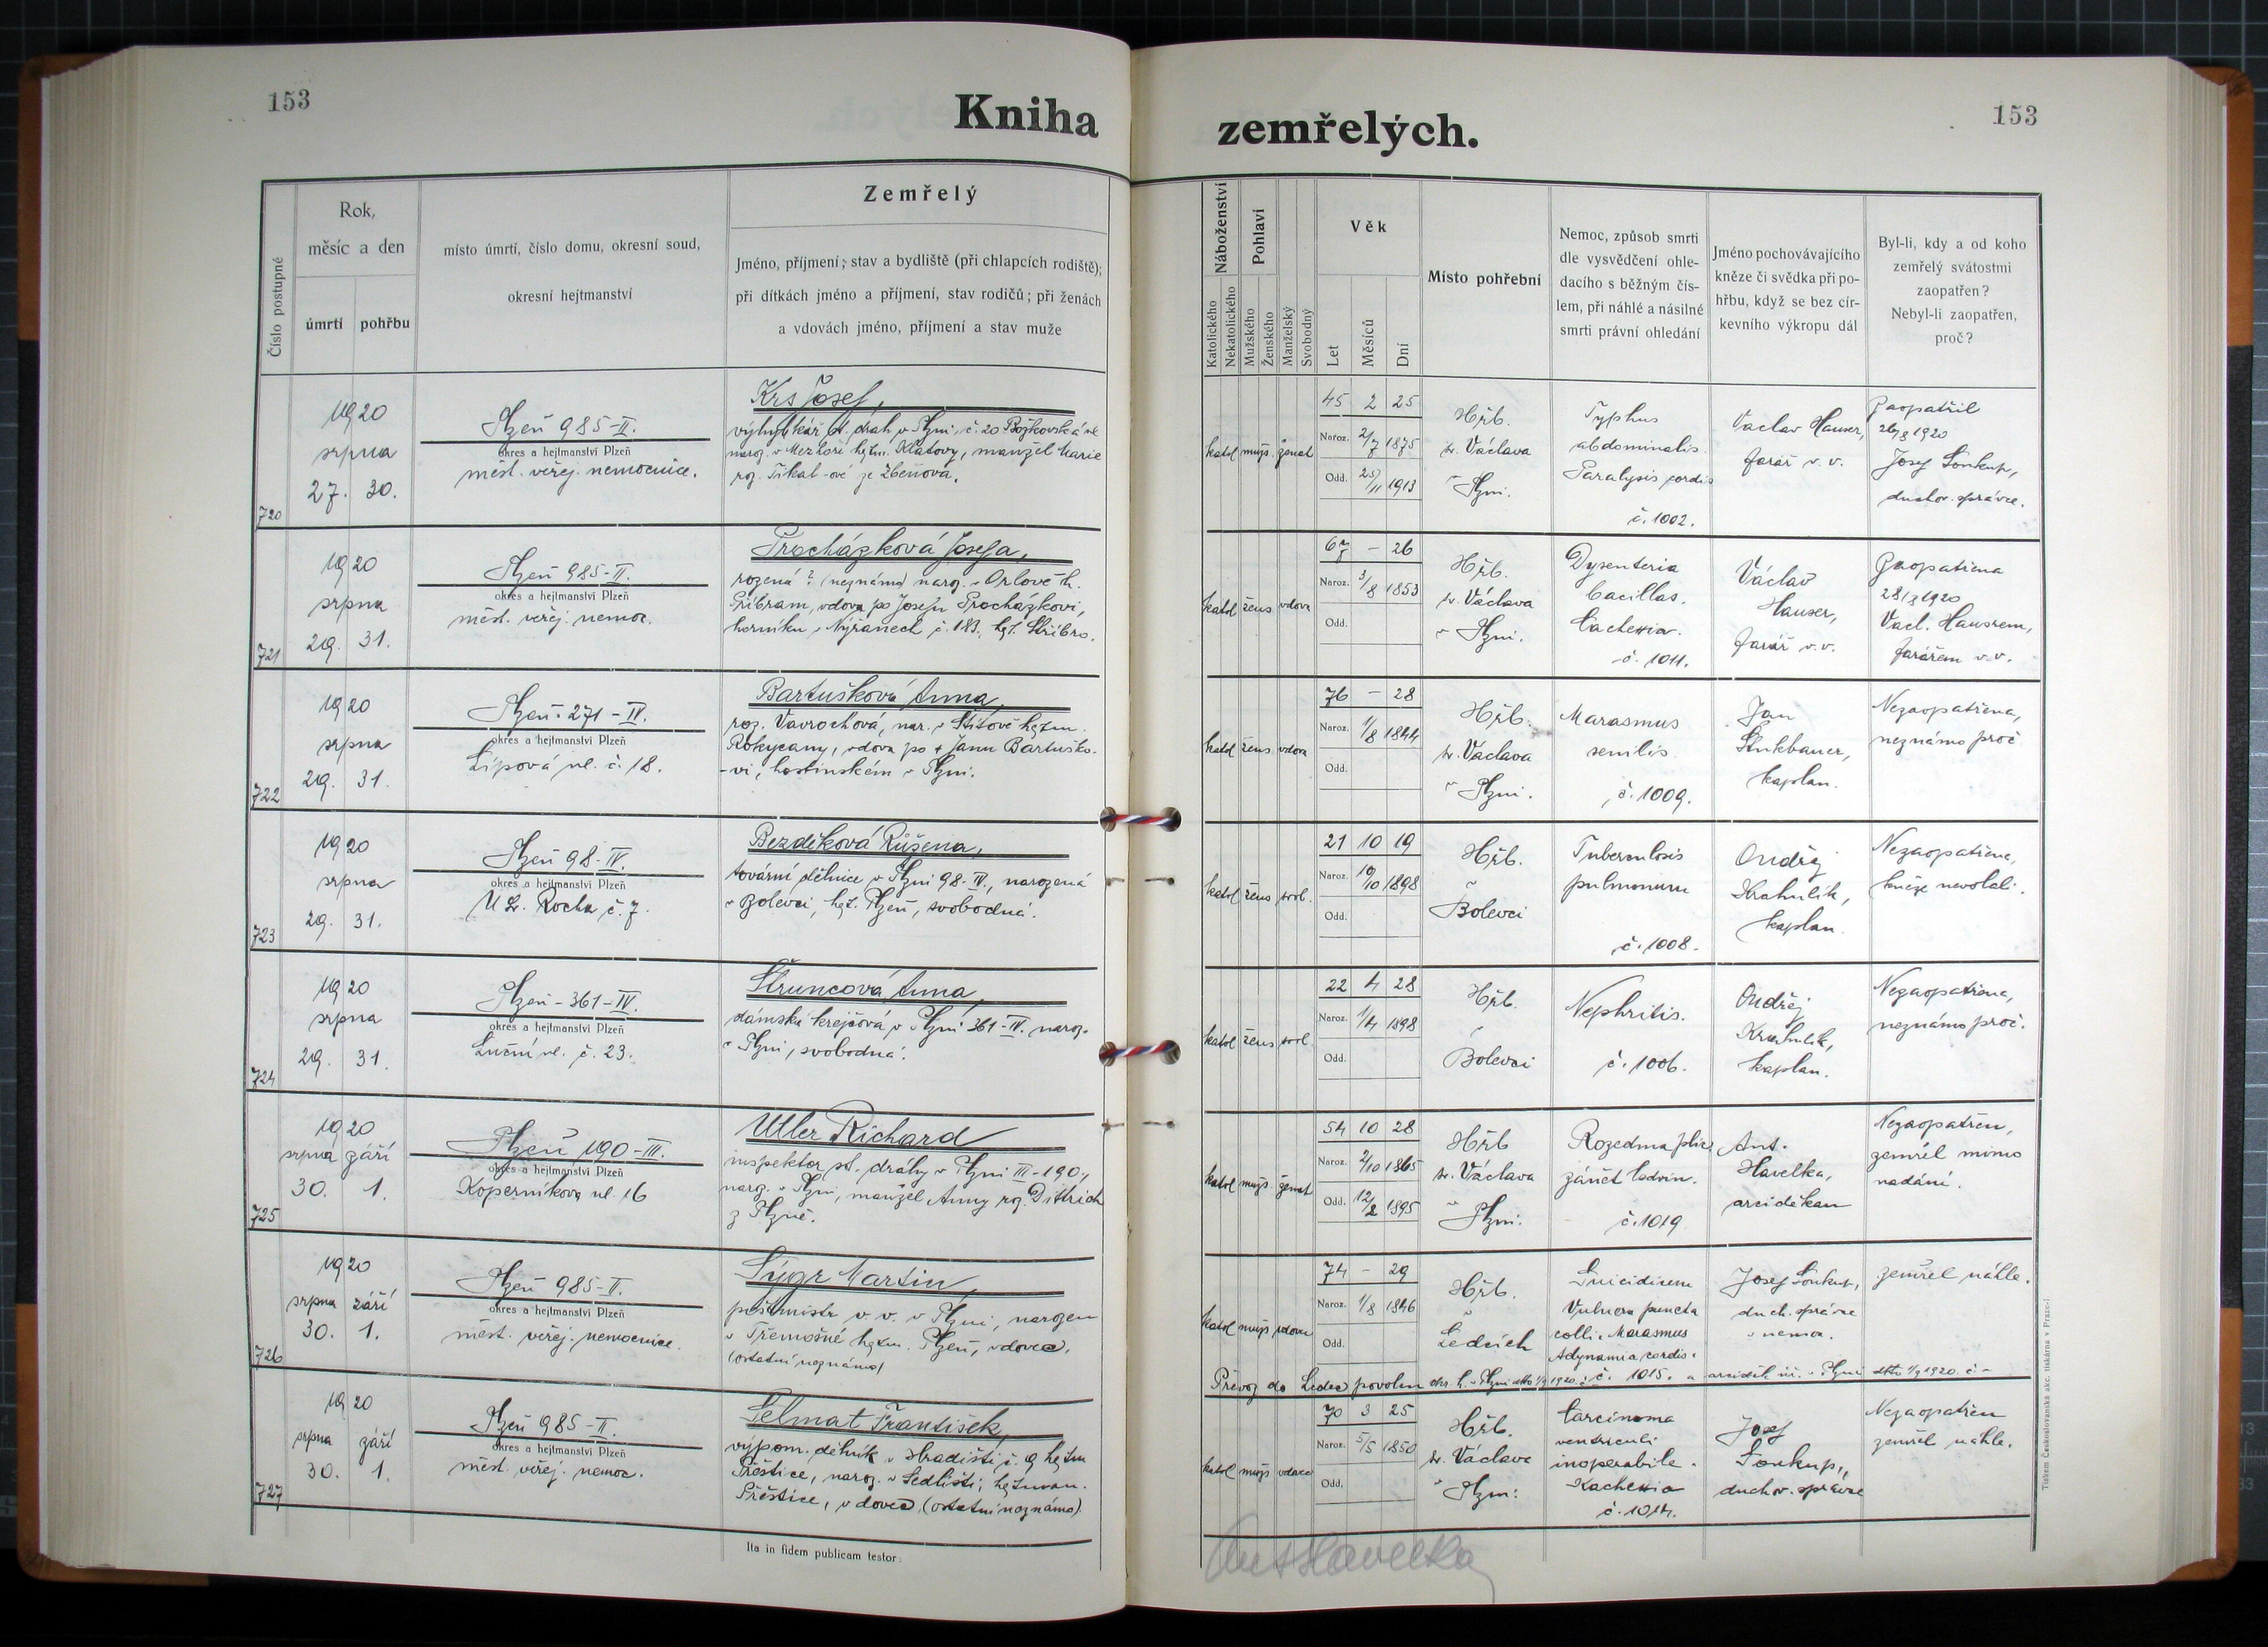 153
Kniha
zemřelých.
153
Číslo postupné
Rok,
měsíc a den
úmrtí
pohřbu
místo úmrtí, číslo domu, okresní soud,
okresní hejtmanství
Zemřelý
Jméno, příjmení; stav a bydliště (při chlapcích rodiště);
při dítkách jméno a příjmení, stav rodičů; při ženách
a vdovách jméno, příjmení a stav muže
Náboženství
Katolického
Nekatolického
Pohlaví
Mužského
Ženského
Manželský
Svobodný
Věk
Let
Měsíců
Dní
Místo pohřební
Nemoc, způsob smrti
dle vysvědčení ohle-
dacího s běžným čís-
lem, při náhlé a násilné
smrti právní ohledání
Jméno pochovávajícího
kněze či svědka při po-
hřbu, když se bez cír-
kevního výkropu dál
Byl-li, kdy a od koho
zemřelý svátostmi
zaopatřen?
Nebyl-li zaopatřen,
proč?
720
1920
srpna
27. 30.
Plzeň 985-II.
okres a hejtmanství Plzeň
měst. veřej. nemocnice.
Krs Josef,
výhybkář st. drah v Plzni, č. 20 Božkovská ul
naroz. v hejtm. Klatovy, manžel Marie
roz. Tikal-ové ze Zbenova.
katol muž. ženat
45 2 25
Naroz. 2/7 1875
Odd. 25/11 1913
Hřb.
sv. Václava
v Plzni.
Typhus
abdominalis.
Paralysis cordis
č. 1002.
Václav Hauser,
farář v. v.
Zaopatřil
26/8 1920
Josef Soukup,
duchov. správce.
721
1920
srpna
29. 31.
Plzeň 985-II.
okres a hejtmanství Plzeň
měst. veřej. nemoc.
Procházková Josefa,
rozená? (neznámo) naroz. v Orlově h.
Příbram, vdova po Josefu Procházkovi,
horníku v Nýřanech č. 183, hejt. Stříbro.
katol žens vdova
67 - 26
Naroz. 3/8 1853
Odd.
Hřb.
sv. Václava
v Plzni.
Dysenteria
bacillas.
Cachexia.
č. 1011.
Václav
Hauser,
farář v. v.
Zaopatřena
28/8 1920
Václ. Hausrem,
farářem v. v.
722
1920
srpna
29. 31.
Plzeň-271-IV.
okres a hejtmanství Plzeň
Lipová ul. č. 18.
Bartušková Anna,
roz. Vavrochová, nar. v Štítově hejtm.
Rokycany, vdova po + Janu Bartuško-
-vi, hostinském v Plzni.
katol žens vdova
76 - 28
Naroz. 1/8 1844
Odd.
Hřb.
sv. Václava
v Plzni.
Marasmus
senilis.
č. 1009.
Jan
kaplan.
Nezaopatřena,
neznámo proč
723
1920
srpna
29. 31.
Plzeň 98-IV.
okres a hejtmanství Plzeň
U Sv. Rocha č. 7.
Bezděková Růžena,
tovární dělnice v Plzni 98-IV., narozená
v Bolevci, hejt. Plzeň, svobodná.
katol žens svob.
21 10 19
Naroz. 10/10 1898
Odd.
Hřb.
v
Bolevci
Tuberculosis
pulmonum
č. 1008.
Ondřej
Krahulík,
kaplan.
Nezaopatřena,
kněze nevolali.
724
1920
srpna
29. 31.
Plzeň-361-IV.
okres a hejtmanství Plzeň
Luční ul. č. 23.
Štruncová Anna,
dámská krejčová v Plzni 361-IV. naroz.
v Plzni, svobodná.
katol žens svob.
22 4 28
Naroz. 1/4 1898
Odd.
Hřb.
v
Bolevci
Nephritis.
č. 1006.
Ondřej
Krahulík,
kaplan.
Nezaopatřena,
neznámo proč.
725
1920
srpna září
30. 1.
Plzeň 190-III.
okres a hejtmanství Plzeň
Koperníkova ul 16
Utler Richard
inspektor st. dráhy v Plzni III-190,
naroz. v Plzni, manžel Anny roz. Dittrich
z Plzně.
katol muž. ženat
54 10 28
Naroz. 2/10 1865
Odd. 12/2 1895
Hřb
sv. Václava
v Plzni.
Rozedma plic
zánět ledvin.
č. 1019
Ant.
Havelka,
arciděkan
Nezaopatřen,
zemřel mimo
nadání.
726
1920
srpna září
30. 1.
Plzeň 985-II.
okres a hejtmanství Plzeň
měst. veřej. nemocnice.
Sýgr Martin,
v. v. v Plzni, narozen
v Třemošné hejtm. Plzeň, vdovec.
(ostatní neznámo)
katol muž vdovec
74 - 29
Naroz. 1/8 1846
Odd.
Hřb.
v
Ledcích
Suicidium
Vulnera puncta
colli. Marasmus
Adynamia cordis.
č. 1015.
Josef Soukup,
duch. správce
v nemoc.
zemřel náhle.
Převoz do Ledec povolen
727
1920
srpna září
30. 1.
Plzeň 985-II.
okres a hejtmanství Plzeň
měst. veřej. nemoc.
Selmat František,
výpom. dělník v Hradišti č. 9 hejtm
Přeštice, naroz. v Sedlišti, hejtman.
Přeštice, vdovec, (ostatní neznámo)
katol muž vdovec
70 3 25
Naroz. 5/5 1850
Odd.
Hřb.
sv. Václava
v Plzni.
Carcinoma
ventriculi
inoperabile.
Kachexia
č. 1014.
Josef
Soukup,
duchov. správce
Nezaopatřen
zemřel náhle.
Ita in fidem publicam testor:
Ant Havelka
Tiskem Českoslovanská akc. tiskárna v Praze-I